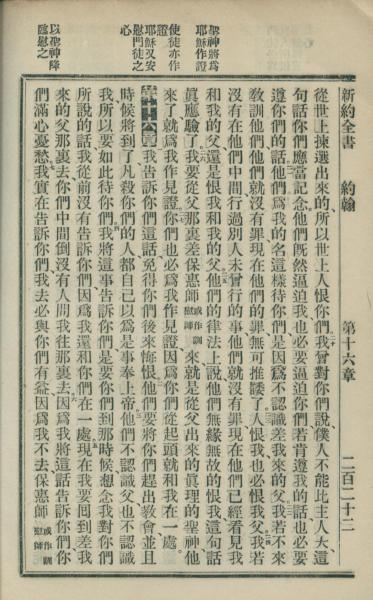 新約全書
約翰
第十六章
二百二十二
聖神將為
耶穌作證
使徒亦作
證
耶穌又安
慰門徒之
心
以聖神降
臨慰之
從世上揀選出來的、所以世上人恨你們、我曾對你們說、僕人不能比主人大、這
句話你們應當記念、他們旣然逼迫我、也必要逼迫你們、若肯遵我的話、也必要
遵你們的話、他們為我的名這樣待你們、是因為不認識差我來的父、我若不來
敎訓他們、他們就沒有罪、現在他們的罪無可推諉了、人恨我、也必恨我父、我若
沒有在他們中間行過別人未曾行的事、他們就沒有罪、現在他們已經看見我
和我的父、還是恨我和我的父、他們的律法上說、他們無緣無故的恨我、這句話
眞應驗了、我要從父那裏差保惠師 或作訓慰師 來、就是從父出來的眞理的聖神、他
來了、就為我作見證、你們也必為我作見證、因為你們從起頭就和我在一處。
第十六章 我告訴你們這話、免得你們後來悔恨、他們要將你們趕出敎會、並且
時候將到了、凡殺你們的人、都自己以為是事奉上帝、他們不認識父、也不認識
我、所以要如此待你們、我將這事告訴你們、是要你們到那時候想念我對你們
所說的話、我從前沒有告訴你們、因為我還和你們在一處、現在我要囘到差我
來的父那裏去、你們中間倒沒有人問我往那裏去、因為我將這話告訴你們、你
們滿心憂愁、我實在告訴你們、我去必與你們有益、因為我不去、保惠師 或作訓慰師